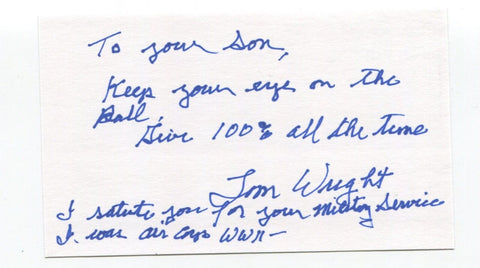 To your son,
Keep your eyes on the
Ball,
Give 100% all the time
Tom Wright
I salute you for your military service
I was air corps WWII-